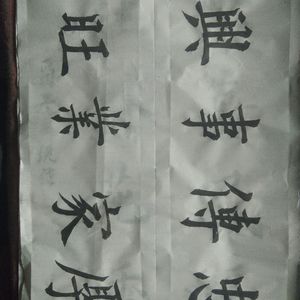 興事傳
旺業家厚